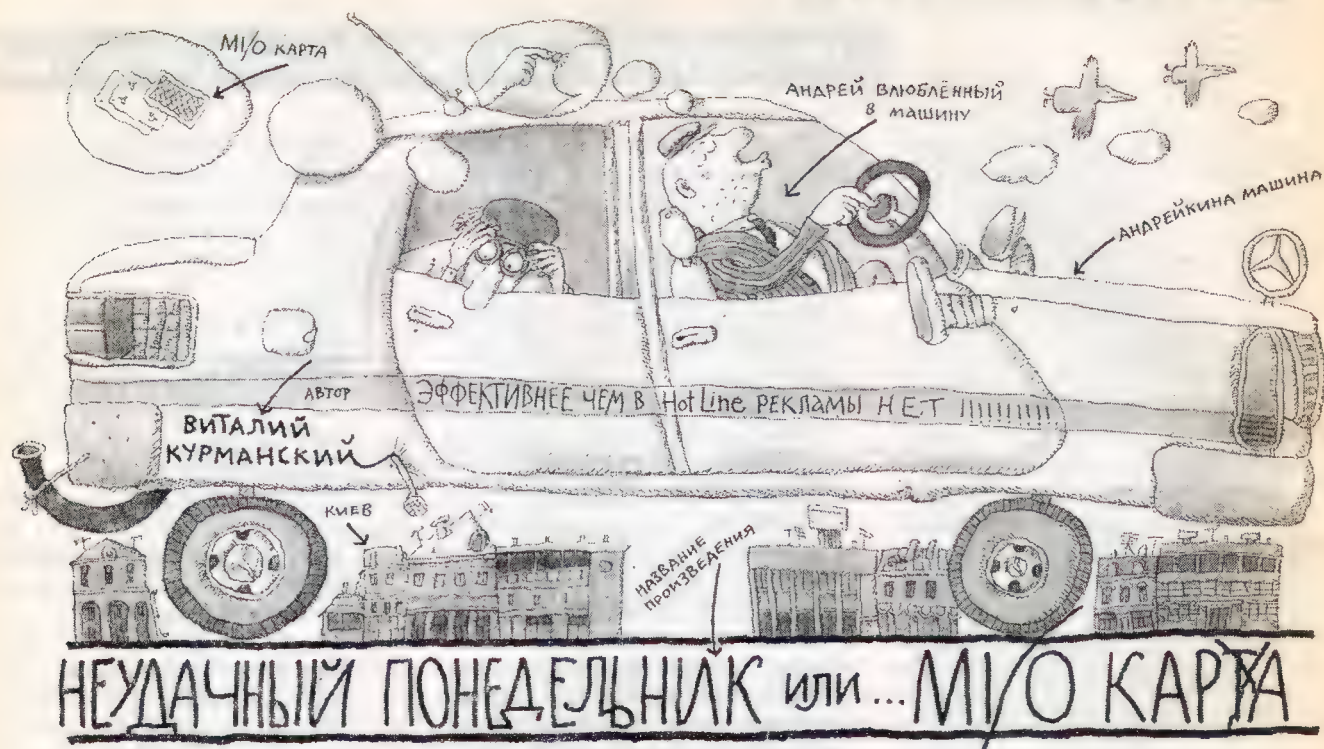 MI/O КАРТА
АНДРЕЙ ВЛЮБЛЁННЫЙ
В МАШИНУ
АНДРЕЙКИНА МАШИНА
АВТОР
ВИТАЛИЙ
КУРМАНСКИЙ
ЭФФЕКТИВНЕЕ ЧЕМ В HotLine РЕКЛАМЫ НЕТ !!!!!!!!!!
КИЕВ
НАЗВАНИЕ
ПРОИЗВЕДЕНИЯ
НЕУДАЧНЫЙ ПОНЕДЕЛЬНИК или... MI/O КАРТА